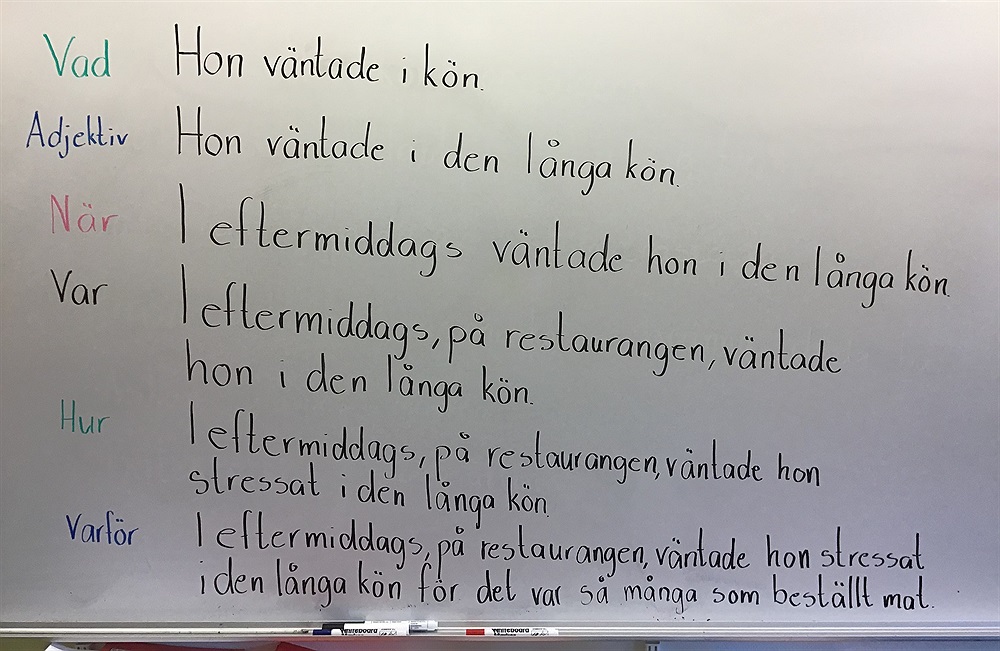 Vad Hon väntade i kön.
Adjektiv Hon väntade i den långa kön.
När I eftermiddags väntade hon i den långa kön.
Var I eftermiddags, på restaurangen, väntade
hon i den långa kön.
Hur I eftermiddags, på restaurangen, väntade hon
stressat i den långa kön
Varför I eftermiddags, på restaurangen, väntade hon stressat
i den långa kön för det var så många som beställt mat.
Whiteboard Whiteboard